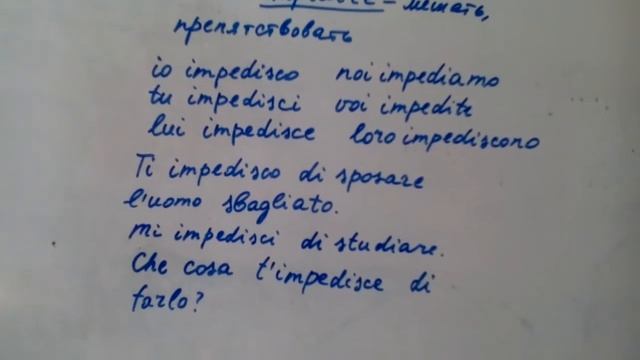 – мешать,
препятствовать
io impedisco noi impediamo
tu impedisci voi impedite
lui impedisce loro impediscono
Ti impedisco di sposare
l'uomo sbagliato.
mi impedisci di studiare.
Che cosa t'impedisce di
farlo?